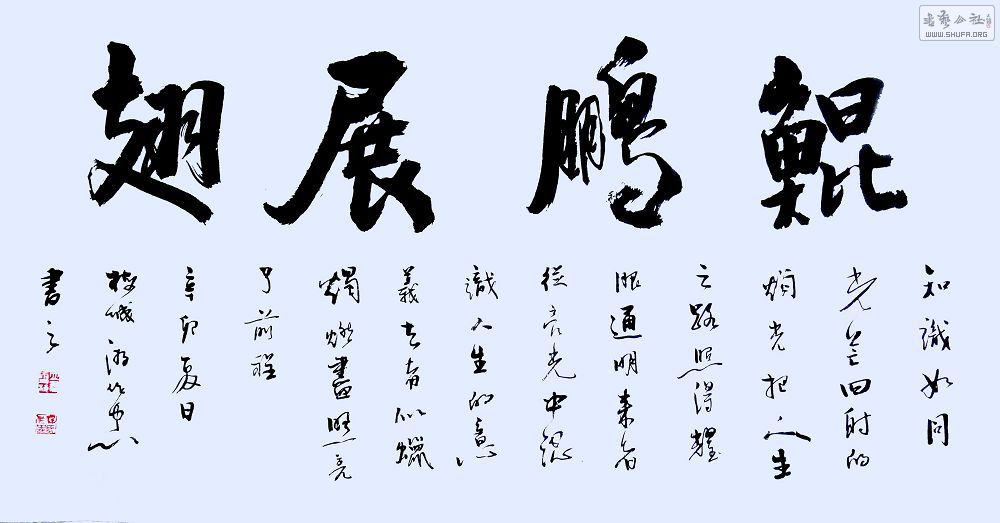 鯤鵬展翅
知識如同
光芒四射的
燭光把人生
之路照得耀
眼通明来者
從亮光中認
識人生的意
義去者似蠟
燭燃盡照亮
了前程
辛卯夏日
書之
书艺公社
WWW.SHUFA.ORG